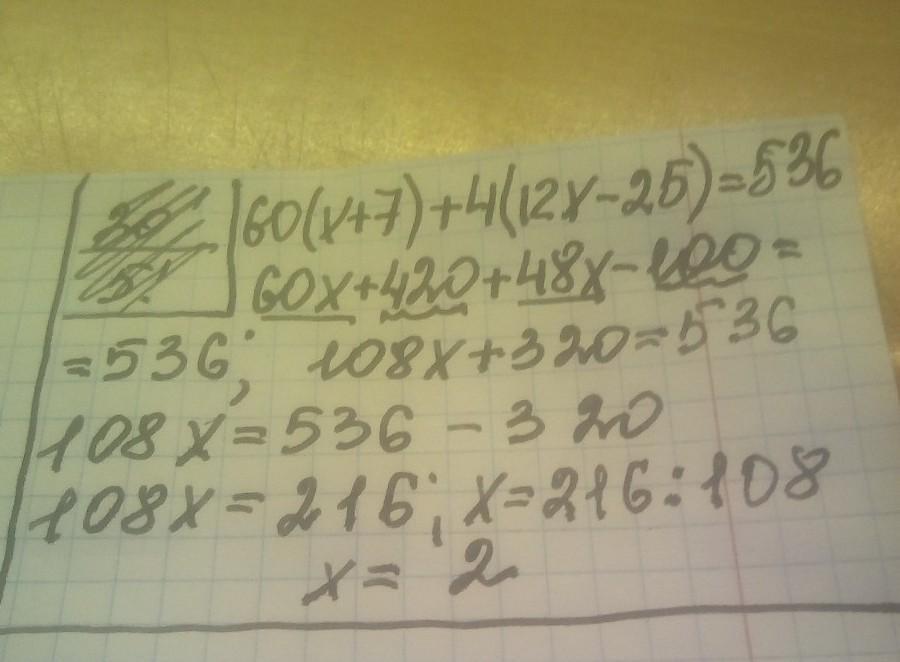 60(x+7)+4(12x-25)=536
60x+420+48x-100=
=536; 108x+320=536
108x=536-320
108x=216; x=216:108
x=2